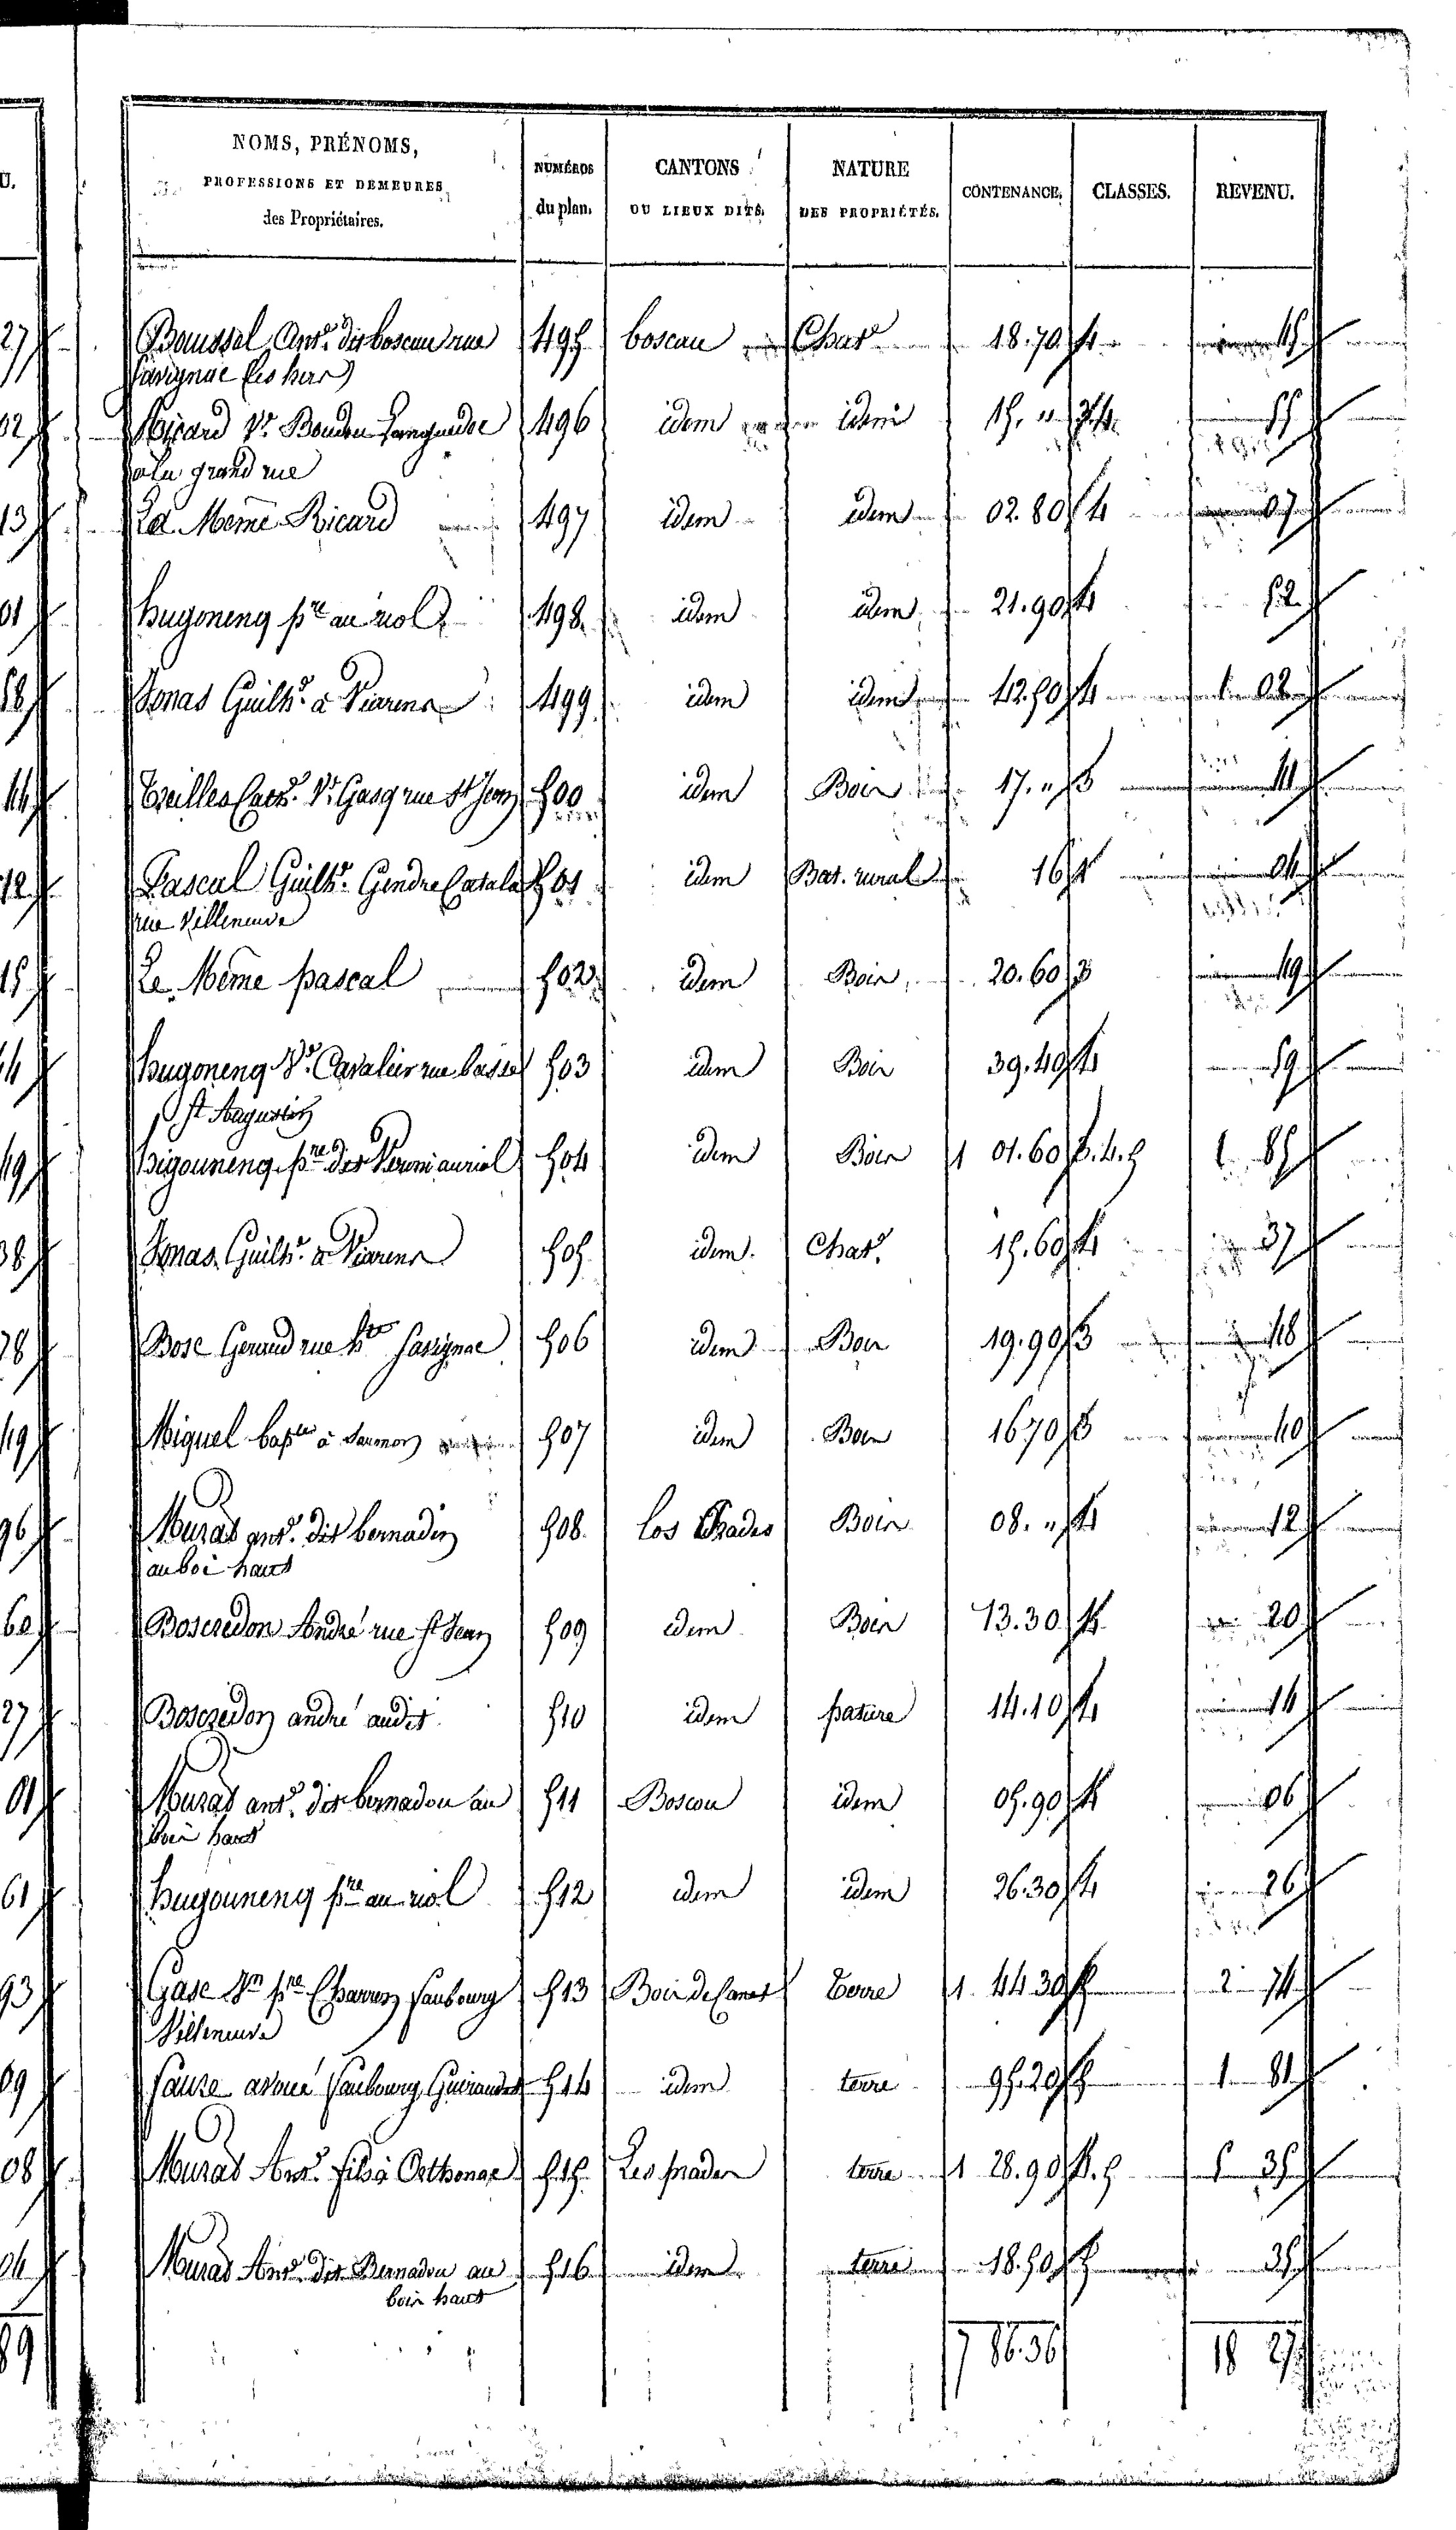 NOMS, PRÉNOMS,
PROFESSIONS ET DEMEURES
des Propriétaires.
NUMÉROS
du plan.
CANTONS
OU LIEUX DITS.
NATURE
DES PROPRIÉTÉS.
CONTENANCE.
CLASSES.
REVENU.
U.
Boussel Ant.e dit boscau rue 495 boscau Chat.r 18.70 4 45
Savignac (les hers)
Ricard V.e Boudou Languedoc 496 idem idem 15. " 3.4. 55
a la grand rue
La Même Ricard 497 idem idem 02.80 4 07
hugoneng p.re au riol 498. idem idem 21.90 4 52
Jonas Guilh.e à Viarens 499 idem idem 42.50 4 1 02
Treilles Cath.e V.e Gasq rue St Jean 500 idem Bois 17. " 3 41
Pascal Guilh.e Gendre Catala 501 idem Bat. rural 16 1 04
rue Villeneuve
Le Même pascal 502 idem Bois 20.60 3 49
hugoneng V.e Cavalier rue basse 503 idem Bois 39.40 4 59
St Augustin
higouneng p.re dit Verni auriol 504 idem Bois 1 01.60 3.4.5 1 85
Jonas Guilh.e à Viarens 505 idem. Chat.r 15.60 4 37
Bosc Geraud rue h.te Savignac 506 idem Bois 19.90 3 48
Miguel bap.te à Sarmon 507 idem Bois 16 70 3 40
Murat ant.e dit bernadin 508 los Prades Bois 08. " 4 12
au boi haut
Boscredon André rue St Jean 509 idem Bois 13.30 4 20
Boscredon andré audit 510 idem pature 14.10 4 14
Murat ant.e dit bernadou au 511 Boscou idem 05.90 4 06
bois haut
hugouneng p.re au riol 512 idem idem 26.30 4 26
Gasc p.re Charron faubourg 513 Bois de Canet Terre 1 44 30 5 2 74
Villeneuve
Sauze avoué faubourg Guiraudet 514 idem terre 95.20 5 1 81
Murat Ant.e fils à Orthonac 515 Les prades terre 1 28.90 4.5 5 35
Murat Ant.e dit Bernadou au 516 idem terre 18.50 5 35
bois haut
7 86.36 18 27
27
02
13
01
58
44
12
15
44
49
38
78
49
96
60
27
01
61
93
09
08
04
89